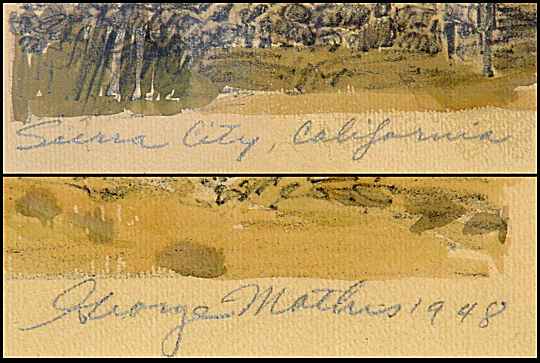 Sierra City, California
George Mathis 1948